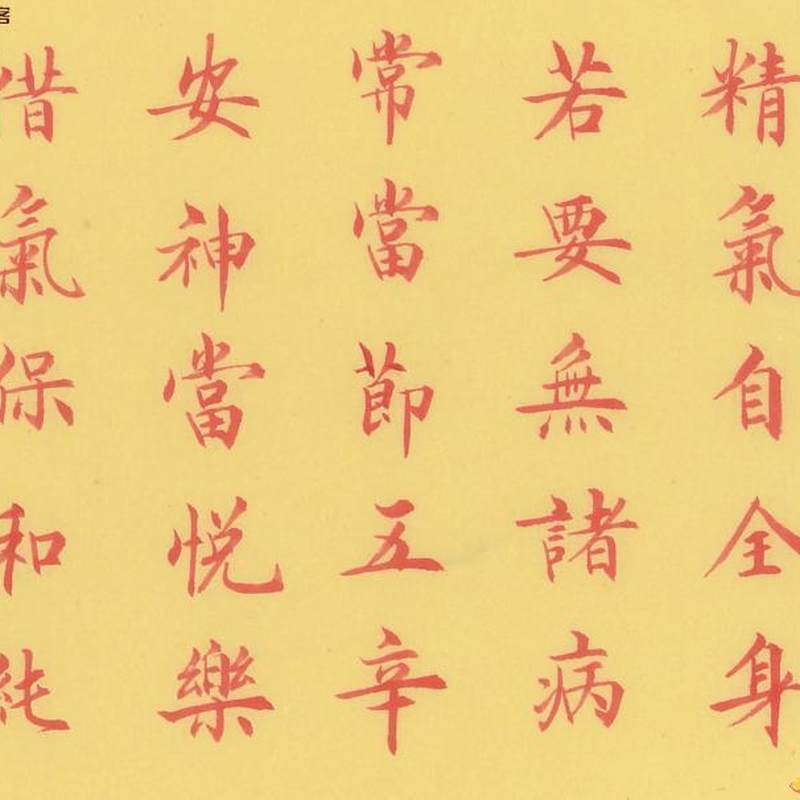 精氣自全身
若要無諸病
常當節五辛
安神當悦樂
惜氣保和純
客